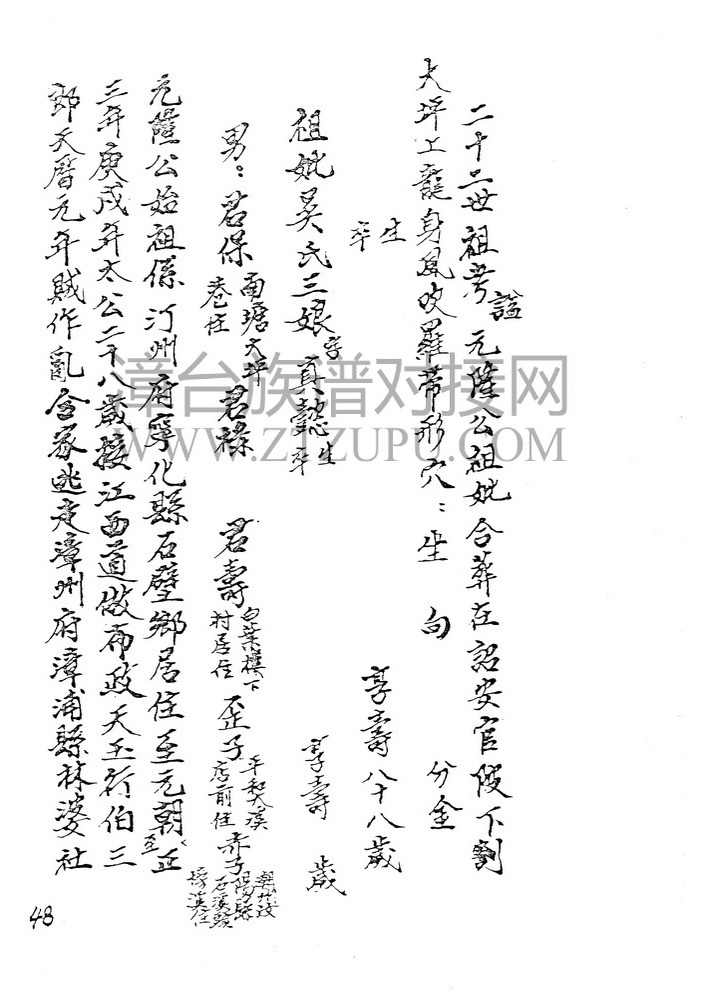 二十二世祖考謚元隆公祖妣合葬在詔安官陂下割
大坪上龍身風吹羅帶形穴：坐 向 分金
生
卒 享壽八十八歲
祖妣吴氏三娘字真懿生卒 享壽 歲
男：君保 南塘大坪巷住 君禄 君壽 白葉樓下村居住 歪子 平和大溪店前住 赤子
元隆公始祖係汀州府寧化縣石壁鄉居住至元朝至正
三年庚戌年太公二十八歲接江西道做布政天玉行伯三
郎天曆元年賊作亂合家逃走漳州府漳浦縣林婆社
48
漳台族谱对接网
WWW.ZTZUPU.COM